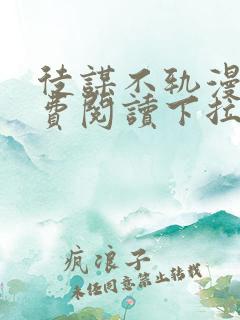 徒謀不軌漫
費閱讀下拉
疯浪子
未任同意禁止转载